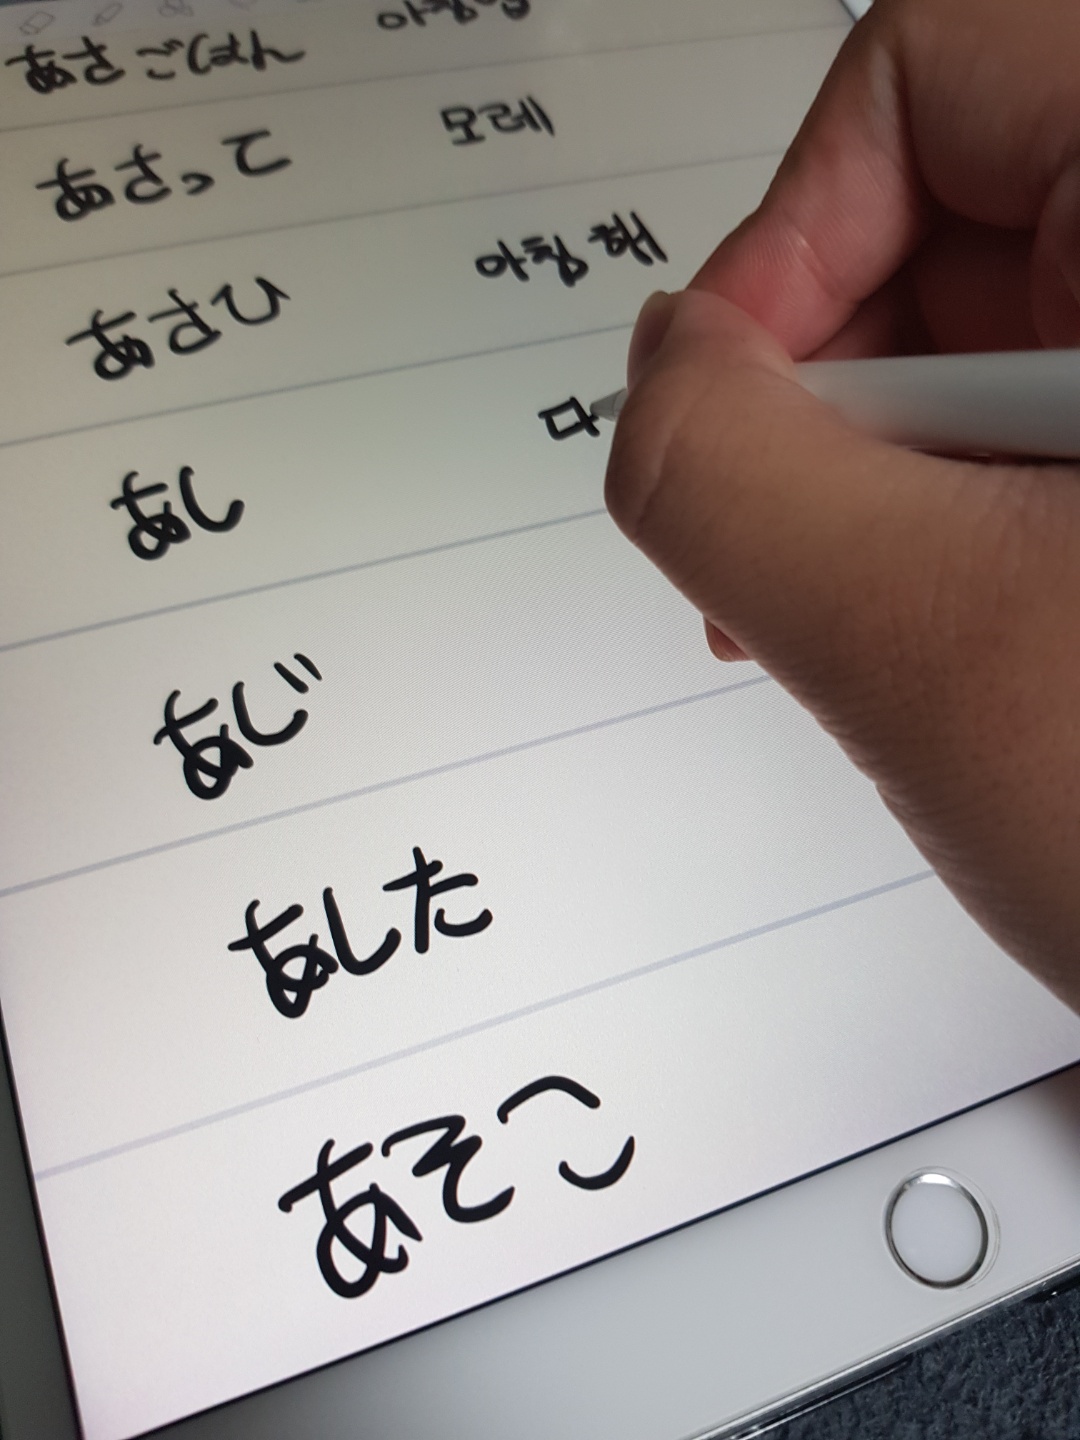 あさごはん
あさって 모레
あさひ 아침 해
あし
あじ
あした
あそこ